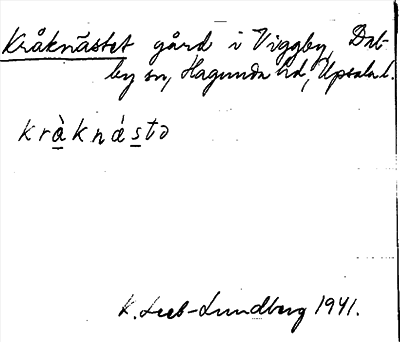 Kråknästet gård i Viggby, Dal-
by sn, Hagunda hd, Upsala l.
kràknásto
K. Leeb-Lundberg 1941.